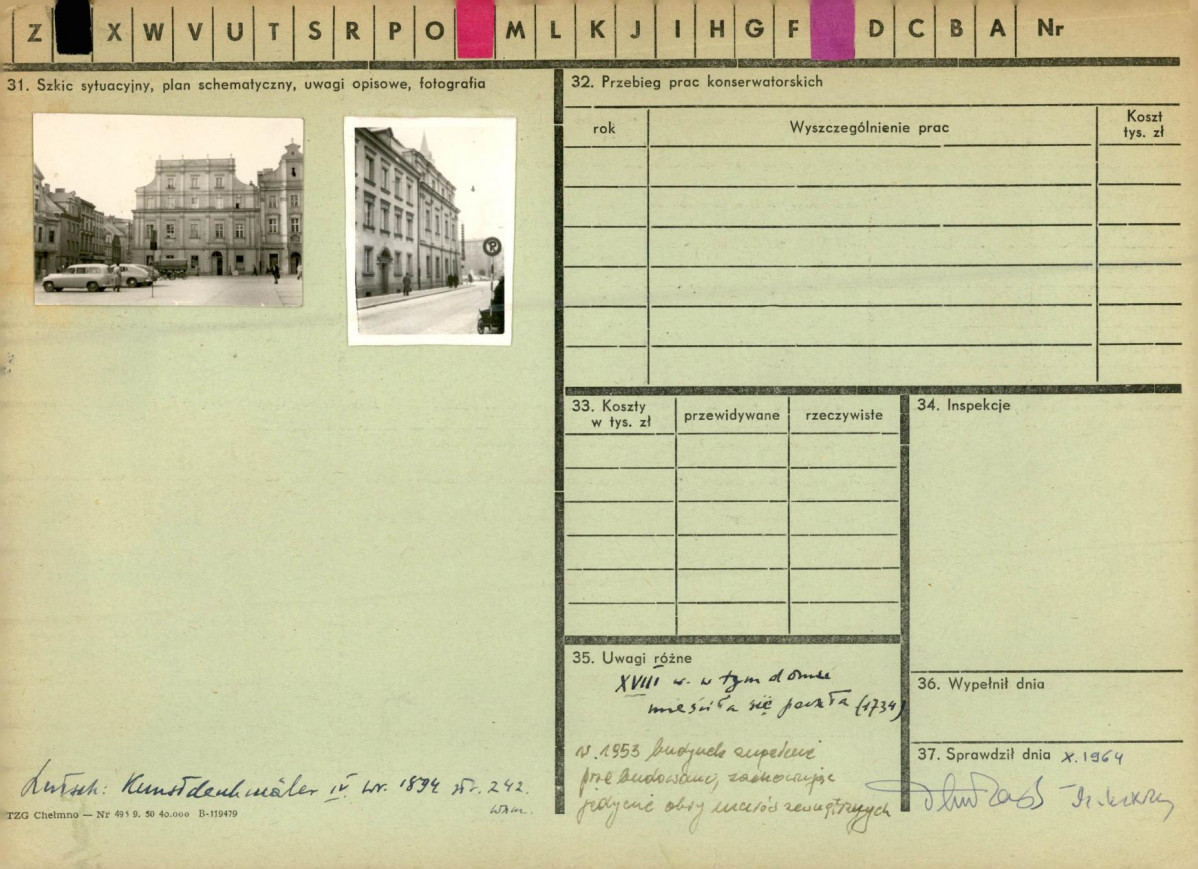 Z X W V U T S R P O M L K J I H G F D C B A Nr
31. Szkic sytuacyjny, plan schematyczny, uwagi opisowe, fotografia
32. Przebieg prac konserwatorskich
rok
Wyszczególnienie prac
Koszt
tys. zł
33. Koszty
w tys. zł
przewidywane
rzeczywiste
34. Inspekcje
35. Uwagi różne
XVIII w. w tym domu
mieściła się poczta (1734)
w 1953 budynek zupełnie
przebudowano, zachowując
jedynie obrys murów zewnętrznych
36. Wypełnił dnia
37. Sprawdził dnia X.1964
Lutsch: Kunstdenkmäler IV. Wr. 1894 str. 242.
TZG Chełmno — Nr 495 9. 50 40.000 B-119479